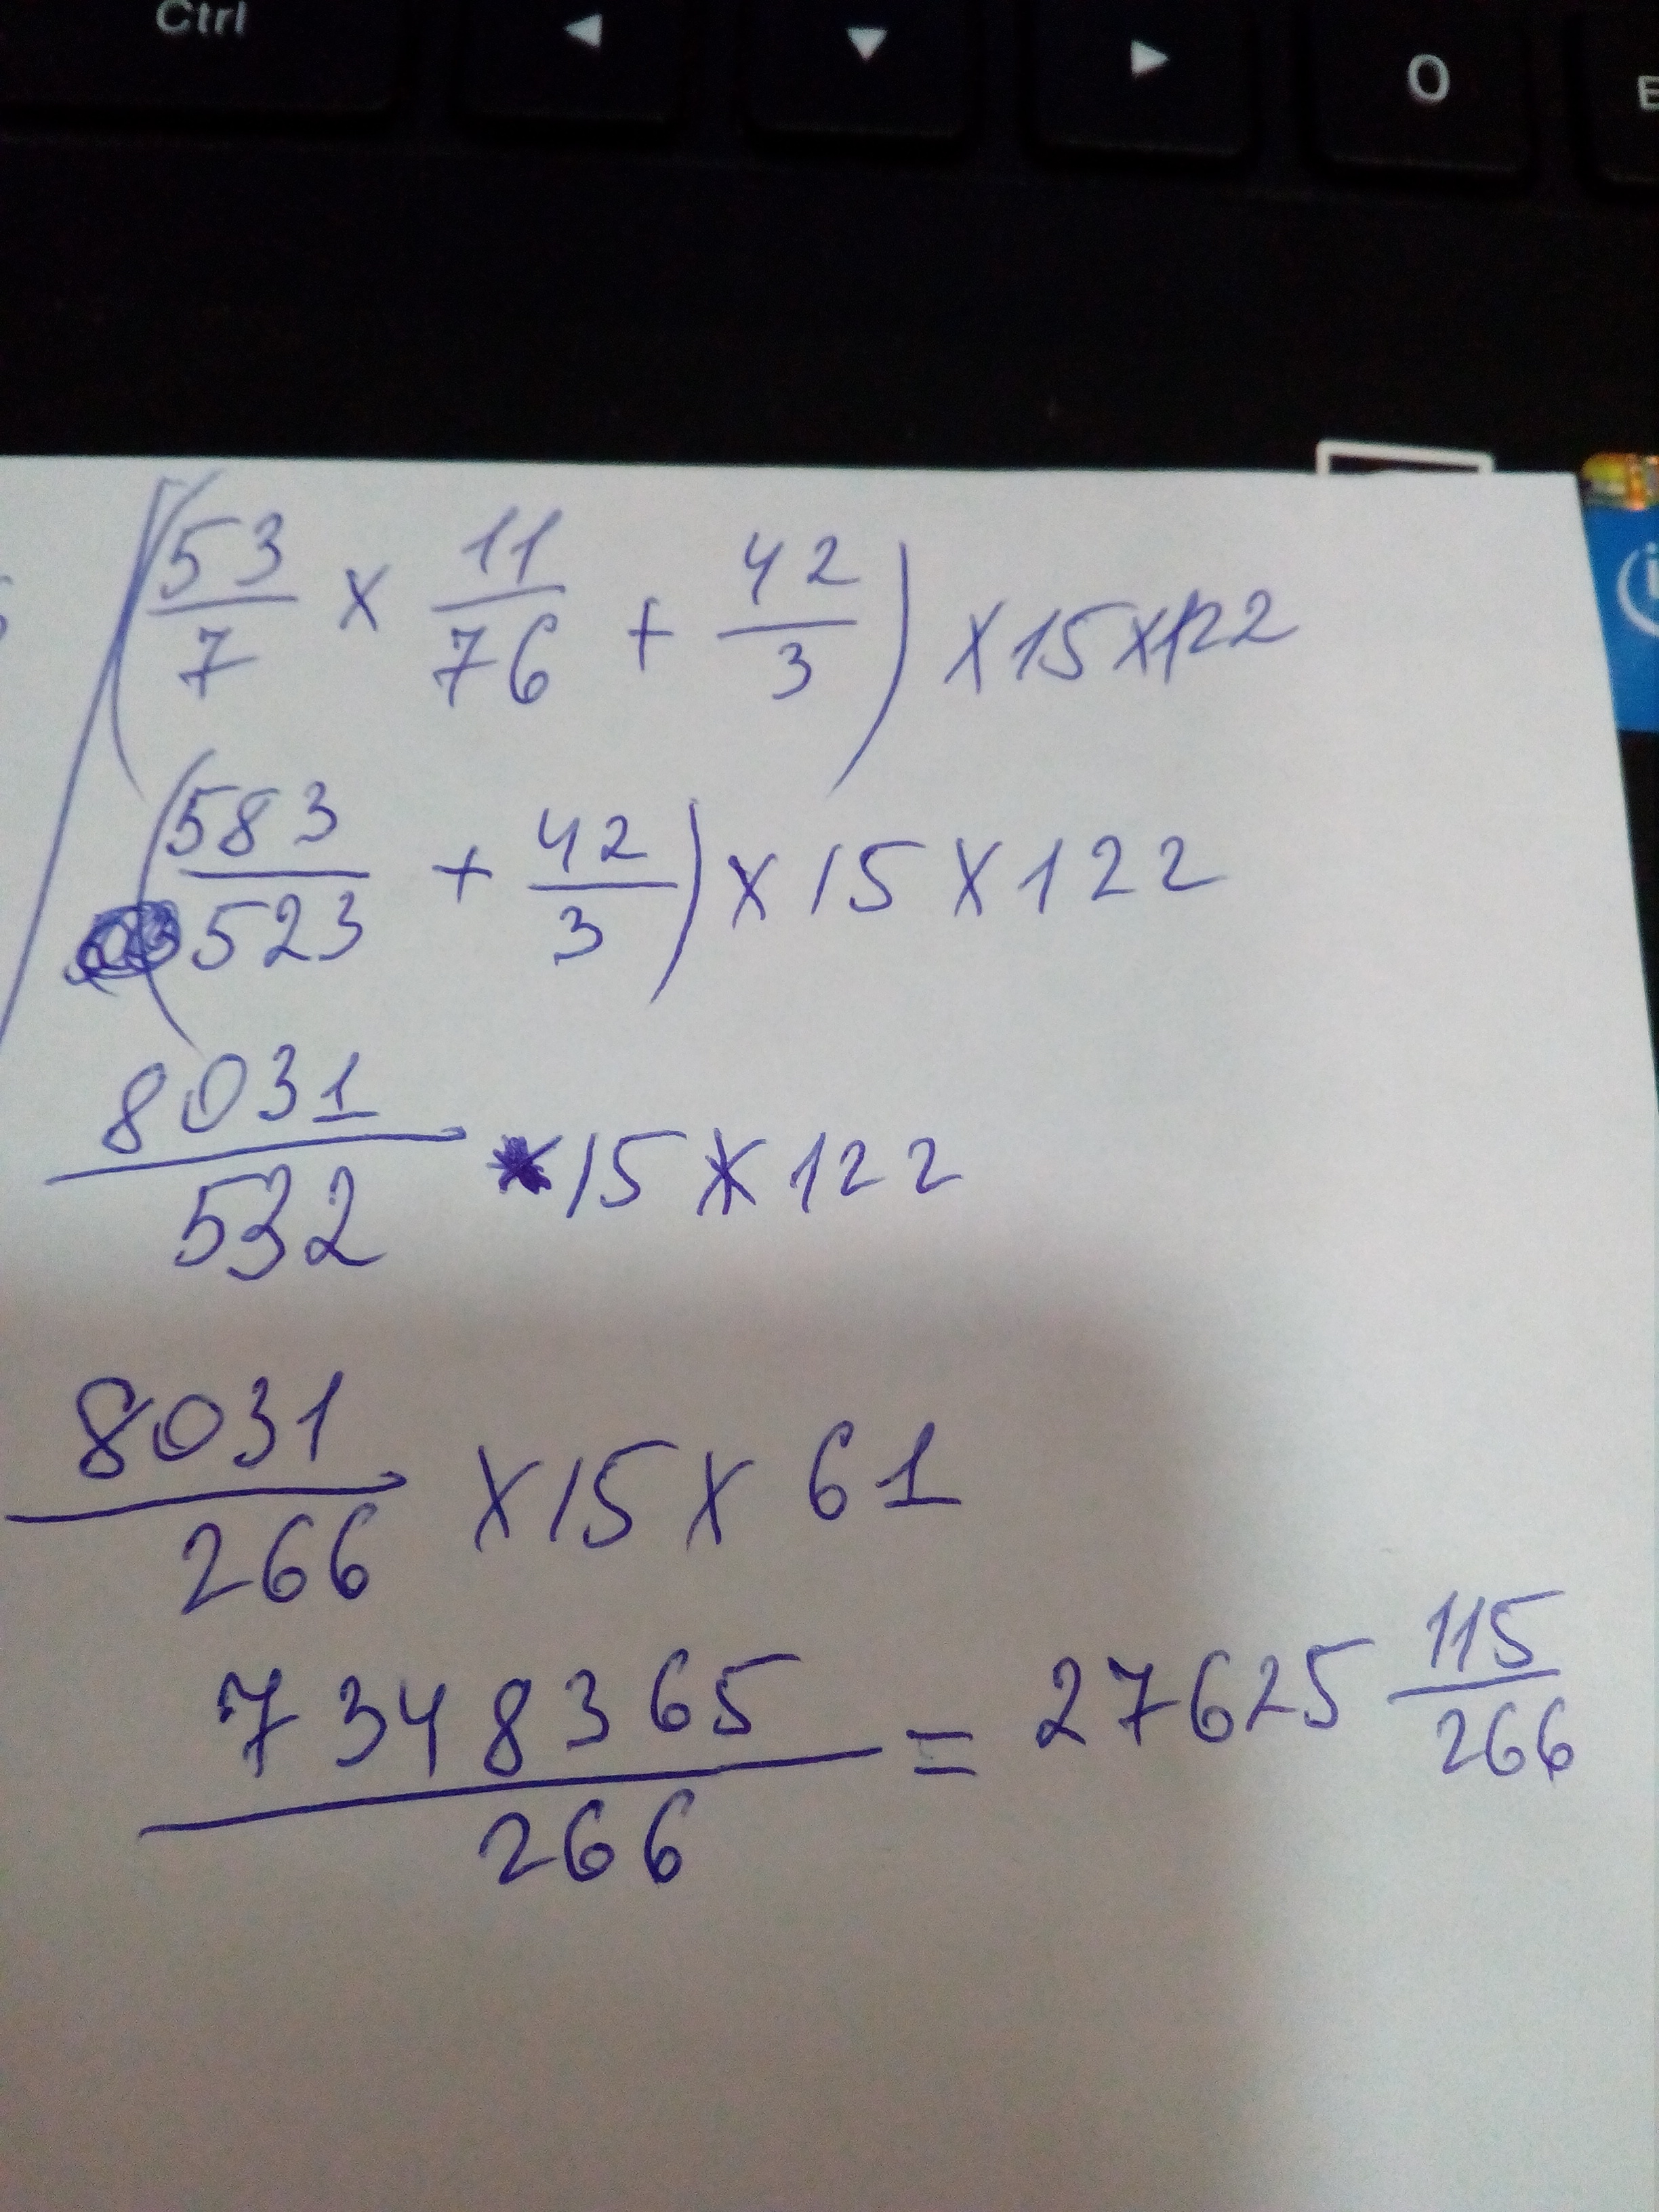 Ctrl ◄ ▼ ► 0
(53/7 × 11/76 + 42/3) × 15 × 122
(583/523 + 42/3) × 15 × 122
8031/532 × 15 × 122
8031/266 × 15 × 61
7348365/266 = 27625 115/266